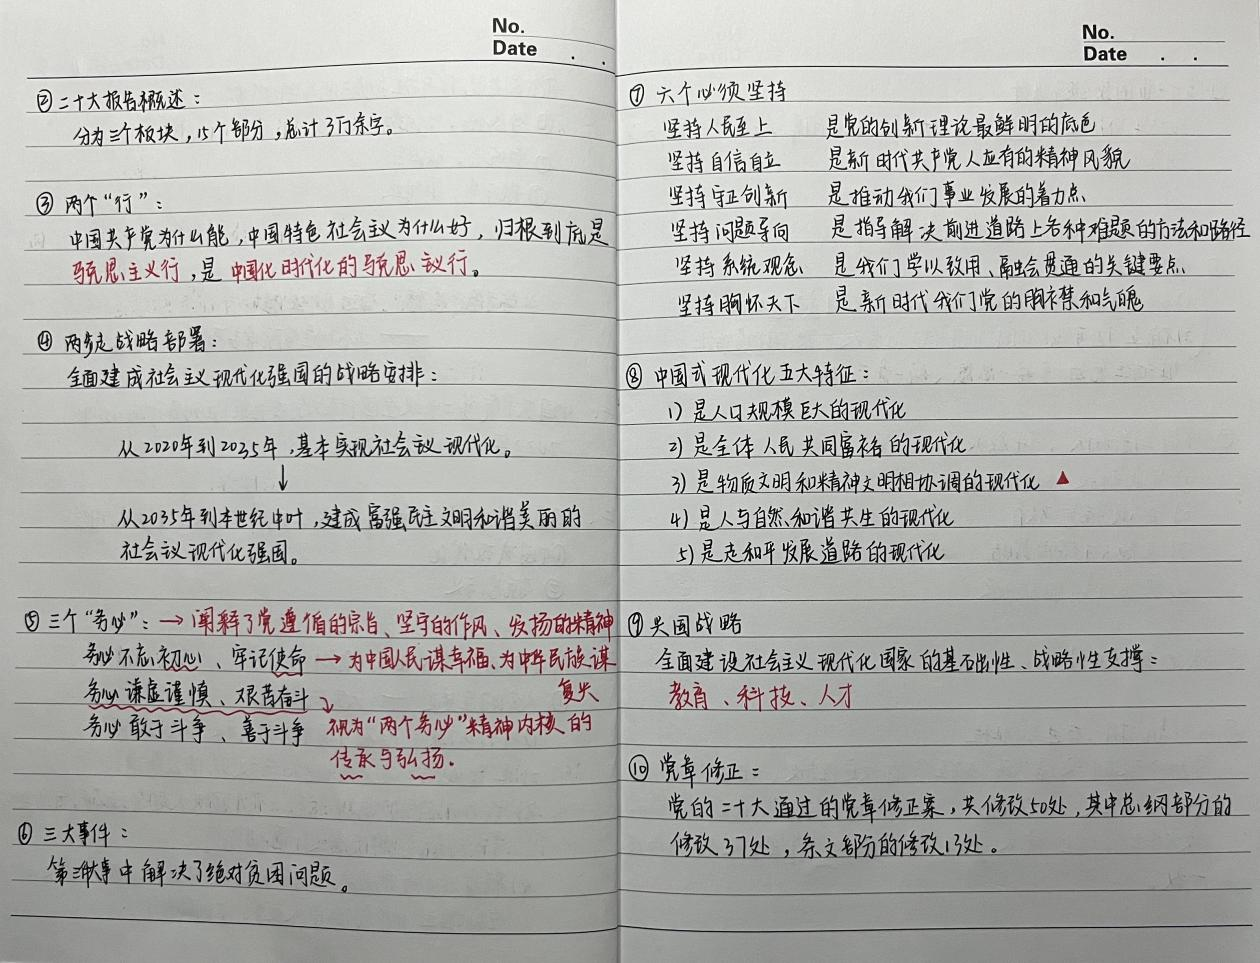 No.
Date . .
② 二十大报告概述：
分为三个板块，15个部分，总计3万余字。
③ 两个“行”：
中国共产党为什么能，中国特色社会主义为什么好，归根到底是
马克思主义行，是中国化时代化的马克思主义行。
④ 两步走战略部署：
全面建成社会主义现代化强国的战略安排：
从2020年到2035年，基本实现社会主义现代化。
↓
从2035年到本世纪中叶，建成富强民主文明和谐美丽的
社会主义现代化强国。
⑤ 三个“务必”：→ 阐释了党遵循的宗旨、坚守的作风、发扬的精神
务必不忘初心、牢记使命 → 为中国人民谋幸福、为中华民族谋
复兴
务必谦虚谨慎、艰苦奋斗
务必敢于斗争、善于斗争
视为“两个务必”精神内核的
传承与弘扬.
⑥ 三大事件：
第三件大事中解决了绝对贫困问题。
No.
Date . .
⑦ 六个必须坚持
坚持人民至上 是党的创新理论最鲜明的底色
坚持自信自立 是新时代共产党人应有的精神风貌
坚持守正创新 是推动我们事业发展的着力点
坚持问题导向 是指导解决前进道路上各种难题的方法和路径
坚持系统观念 是我们学以致用、融会贯通的关键要点
坚持胸怀天下 是新时代我们党的胸襟和气魄
⑧ 中国式现代化五大特征：
1) 是人口规模巨大的现代化
2) 是全体人民共同富裕的现代化
3) 是物质文明和精神文明相协调的现代化 ▲
4) 是人与自然和谐共生的现代化
5) 是走和平发展道路的现代化
⑨ 兴国战略
全面建设社会主义现代化国家的基础性、战略性支撑：
教育、科技、人才
⑩ 党章修正：
党的二十大通过的党章修正案，共修改50处，其中总纲部分的
修改37处，条文部分的修改13处。